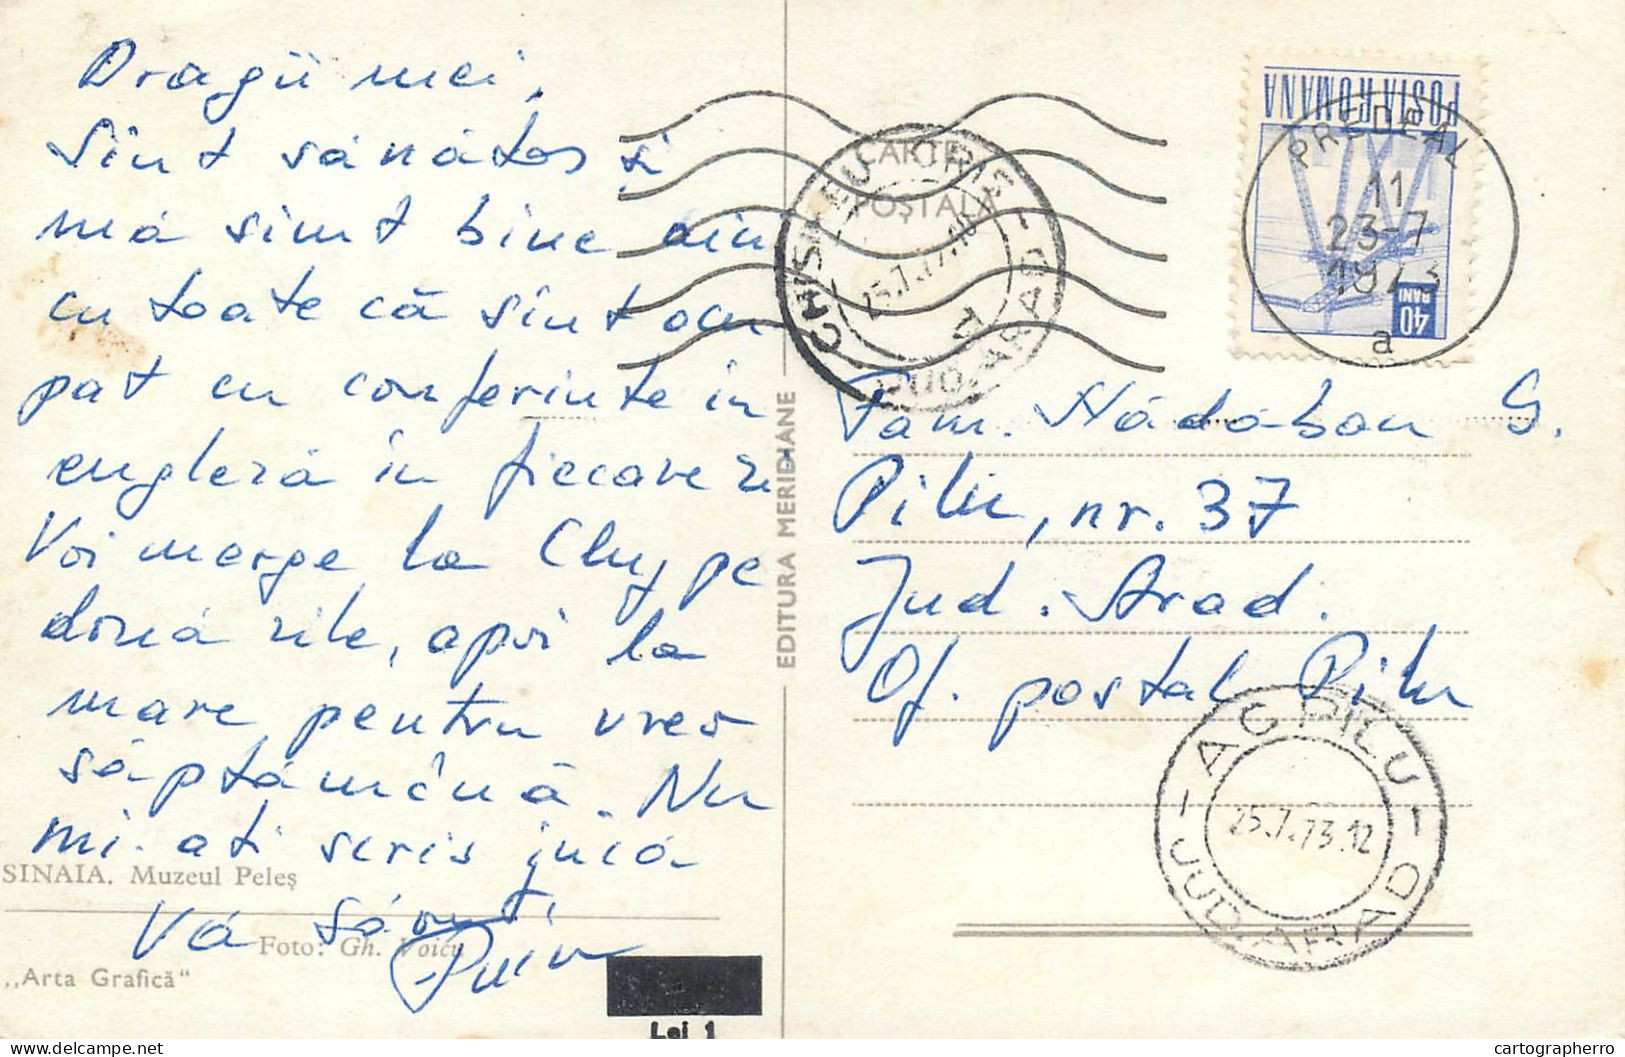 Dragii mei,
Sînt sănătos și
mă simt bine din
cu toate că sînt ocu
pat cu conferințe în
engleză în fiecare zi
Voi merge la Cluj pe
două zile, apoi la
mare pentru vreo
săptămînă. Nu
mi-ați scris încă
Vă sărut,
Puiu
SINAIA. Muzeul Peleș
Foto: Gh. Voicu
„Arta Grafică"
Lei 1
EDITURA MERIDIANE
CARTE
POȘTALĂ
CHIȘINEU CRIȘ
JUD. ARAD
25.7.
POSTA ROMANA
40
BANI
PREDEAL
11
23-7
1973
a
Fam. Nádában G.
Pilu, nr. 37
Jud. Arad.
Of. postal Pilu
AG PILU
25.7.73.12
JUD. ARAD
cartographerro